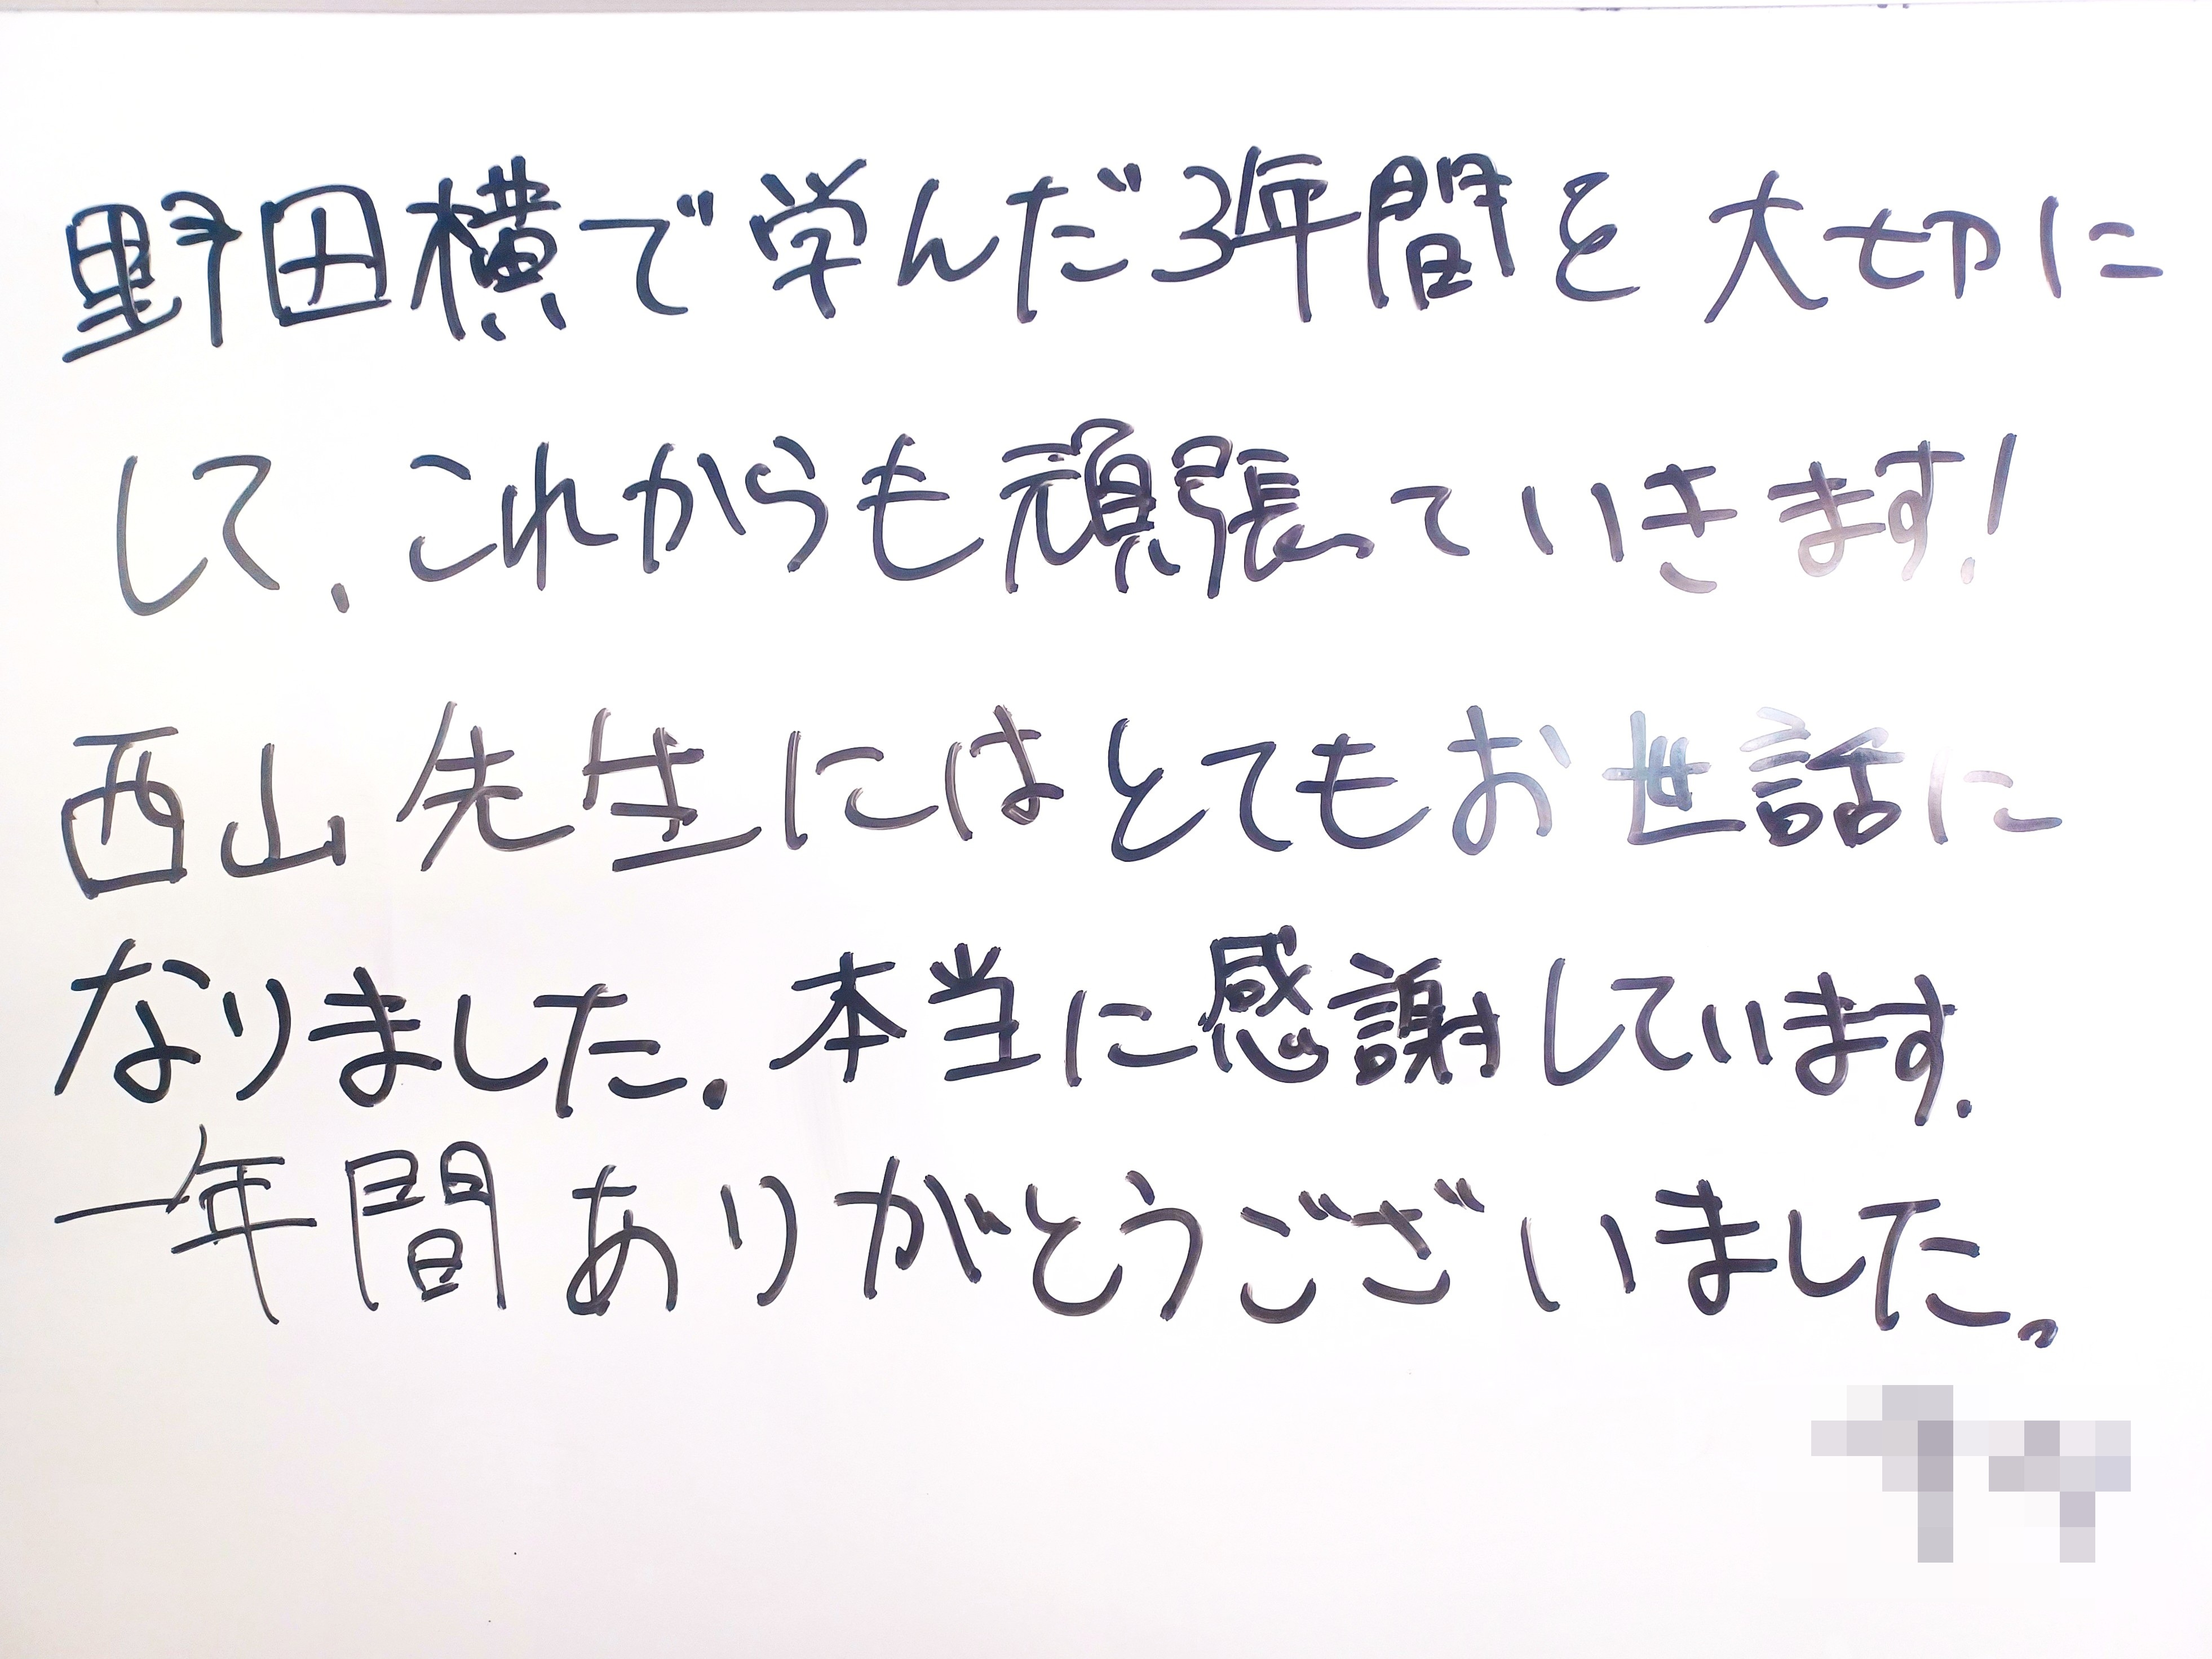 野田横で学んだ3年間を大切に
して、これからも頑張っていきます!
西山先生にはとてもお世話に
なりました。本当に感謝しています。
一年間ありがとうございました。